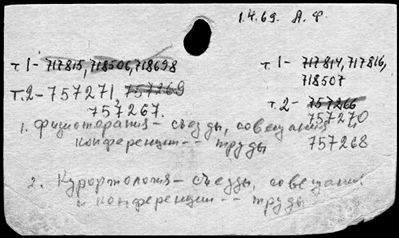 1.4.69. А.Ф
т.1- 717815, 718506, 718698
т.1- 717814, 717816,
718507
т.2- 757271 757269
757267.
т.2- 757266
757270
757268
1. Физиотерапия - съезды, совещания
конференции -- труды
2. Курортология - съезды, совещания
и конференции -- труды